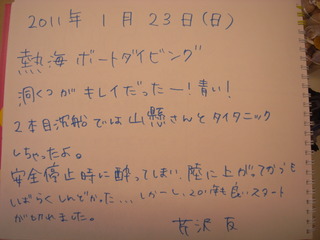 2011年 1月23日(日)
熱海ボートダイビング
洞くつがキレイだったー!青い!
2本目沈船では山懸さんとタイタニック
しちゃったよ。
安全停止時に酔ってしまい、陸に上がってからも
しばらくしんどかった...しかーし、2011年も良いスタート
がきれました。
芹沢 友